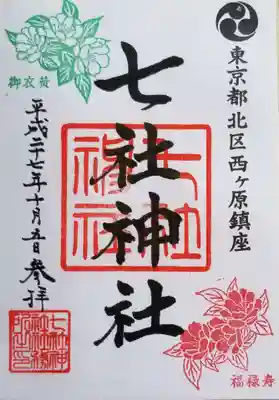 東京都北区西ヶ原鎮座
福禄寿
七社神社
七社神社
御衣黄
平成二十七年十月五日参拝
七社神
社社務
所之印